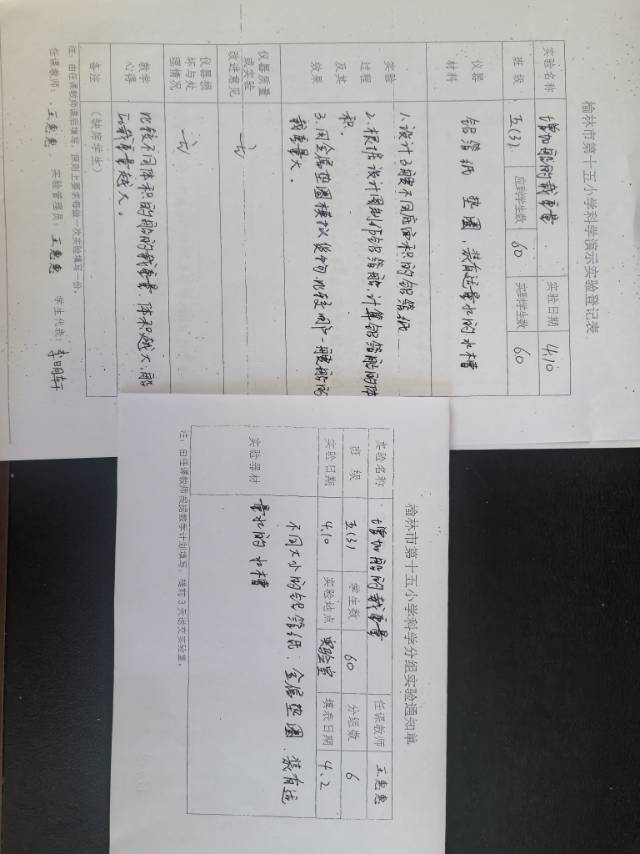 榆林市第十五小学科学演示实验登记表
实验名称 增加船的载重量 实验日期 4.10
班级 五(3). 应到学生数 60 实到学生数 60
仪器材料 铝箔纸 垫圈、装有适量水的水槽
实验过程及其效果
1.设计3艘不同底面积的铝箔纸
2.根据设计图制作铝箔船,计算铝箔船的体
积.
3.用金属垫圈模拟货物,比较哪一艘船的
载重量大.
仪器质量或实验改进意见 无
仪器损坏与处理情况 无
教学心得 比较不同体积的船的载重量,体积越大,船
的载重量越大。
备注 (缺席学生)
注:由任课教师课后填写,原则上要求每做一次实验填写一份。
任课教师:王惠惠 实验管理员:王惠惠 学生代表:李明轩
榆林市第十五小学科学分组实验通知单
实验名称 增加船的载重量 任课教师 王惠惠
班级 五(3) 学生数 60 分组数 6
实验日期 4.10 实验地点 实验室 填表日期 4.2
实验器材 不同大小的铝箔纸、金属垫圈、装有适
量水的水槽
注:由任课教师根据教学计划填写,提前3天送交实验室。